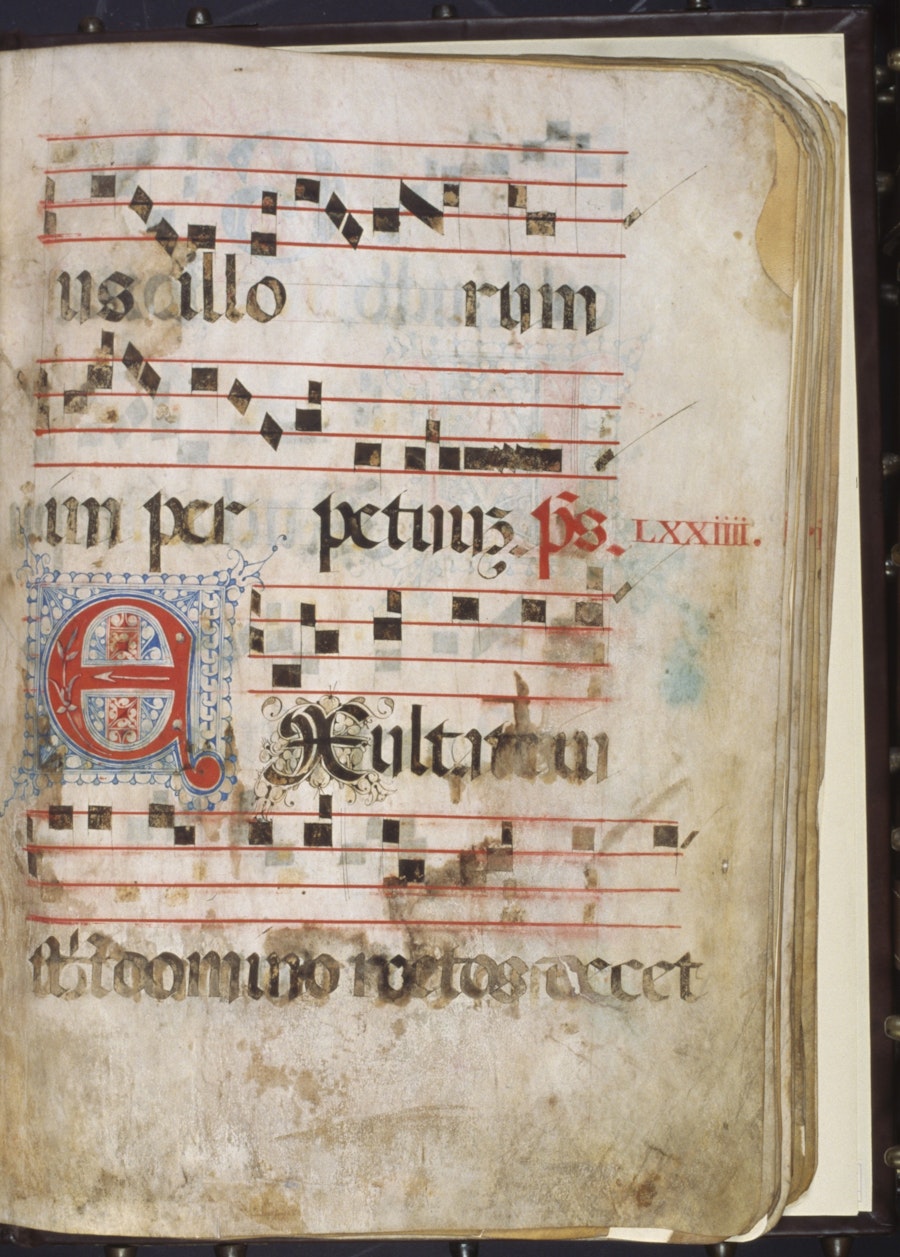 us illo rum
um per petuuz. p̄s. LXXIIII.
EXultate iu
sti ī domino rectos decet